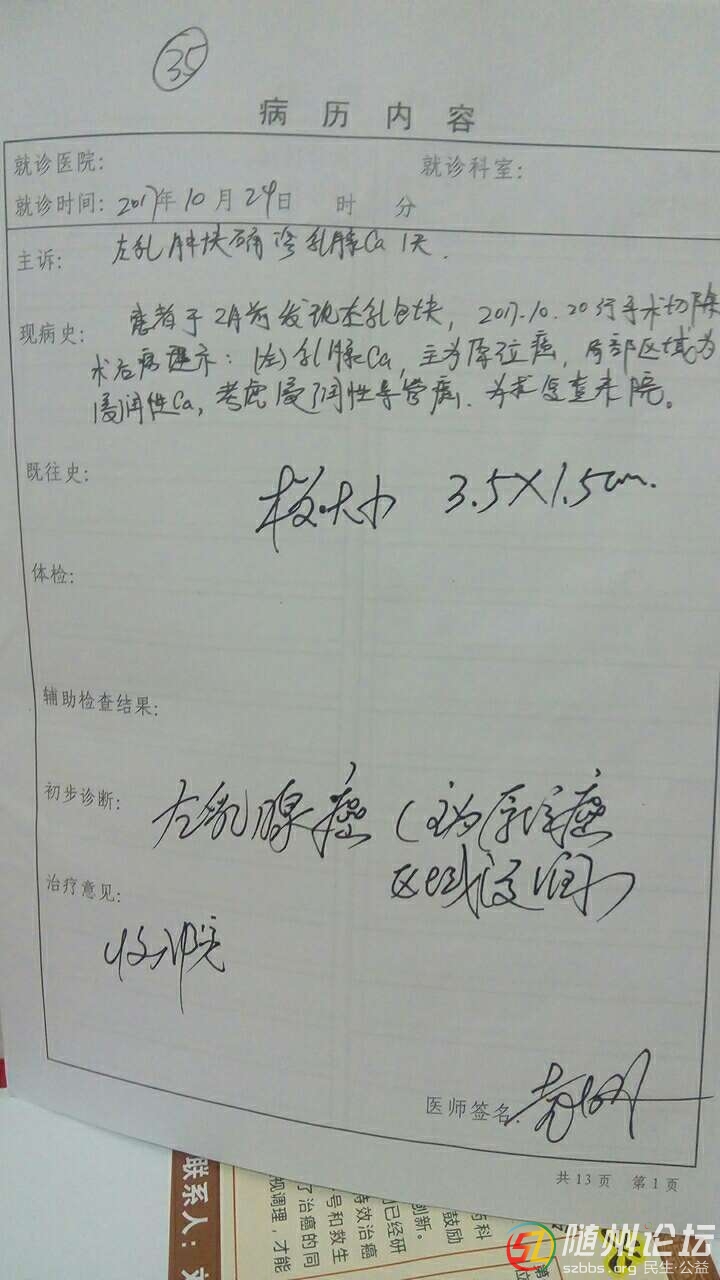 35
病历内容
就诊医院: 就诊科室:
就诊时间: 2017年10月24日 时 分
主诉: 左乳肿块确诊乳腺Ca 1天.
现病史: 患者于2月前发现左乳包块, 2017.10.20行手术切除
术后病理示: (左)乳腺Ca, 主为原位癌, 局部区域为
浸润性Ca, 考虑浸润性导管癌. 为求复查来院。
既往史:
大小 3.5X1.5cm.
体检:
辅助检查结果:
初步诊断: 左乳腺癌 (主为原位癌
区域浸润)
治疗意见:
收入院
医师签名:
共13页 第1页
联系人:
视调理,才能
了治癌的同
号和救生
特效治癌
已经研
创新。
鼓励
科
第
位
随州论坛
szbbs.org 民生·公益